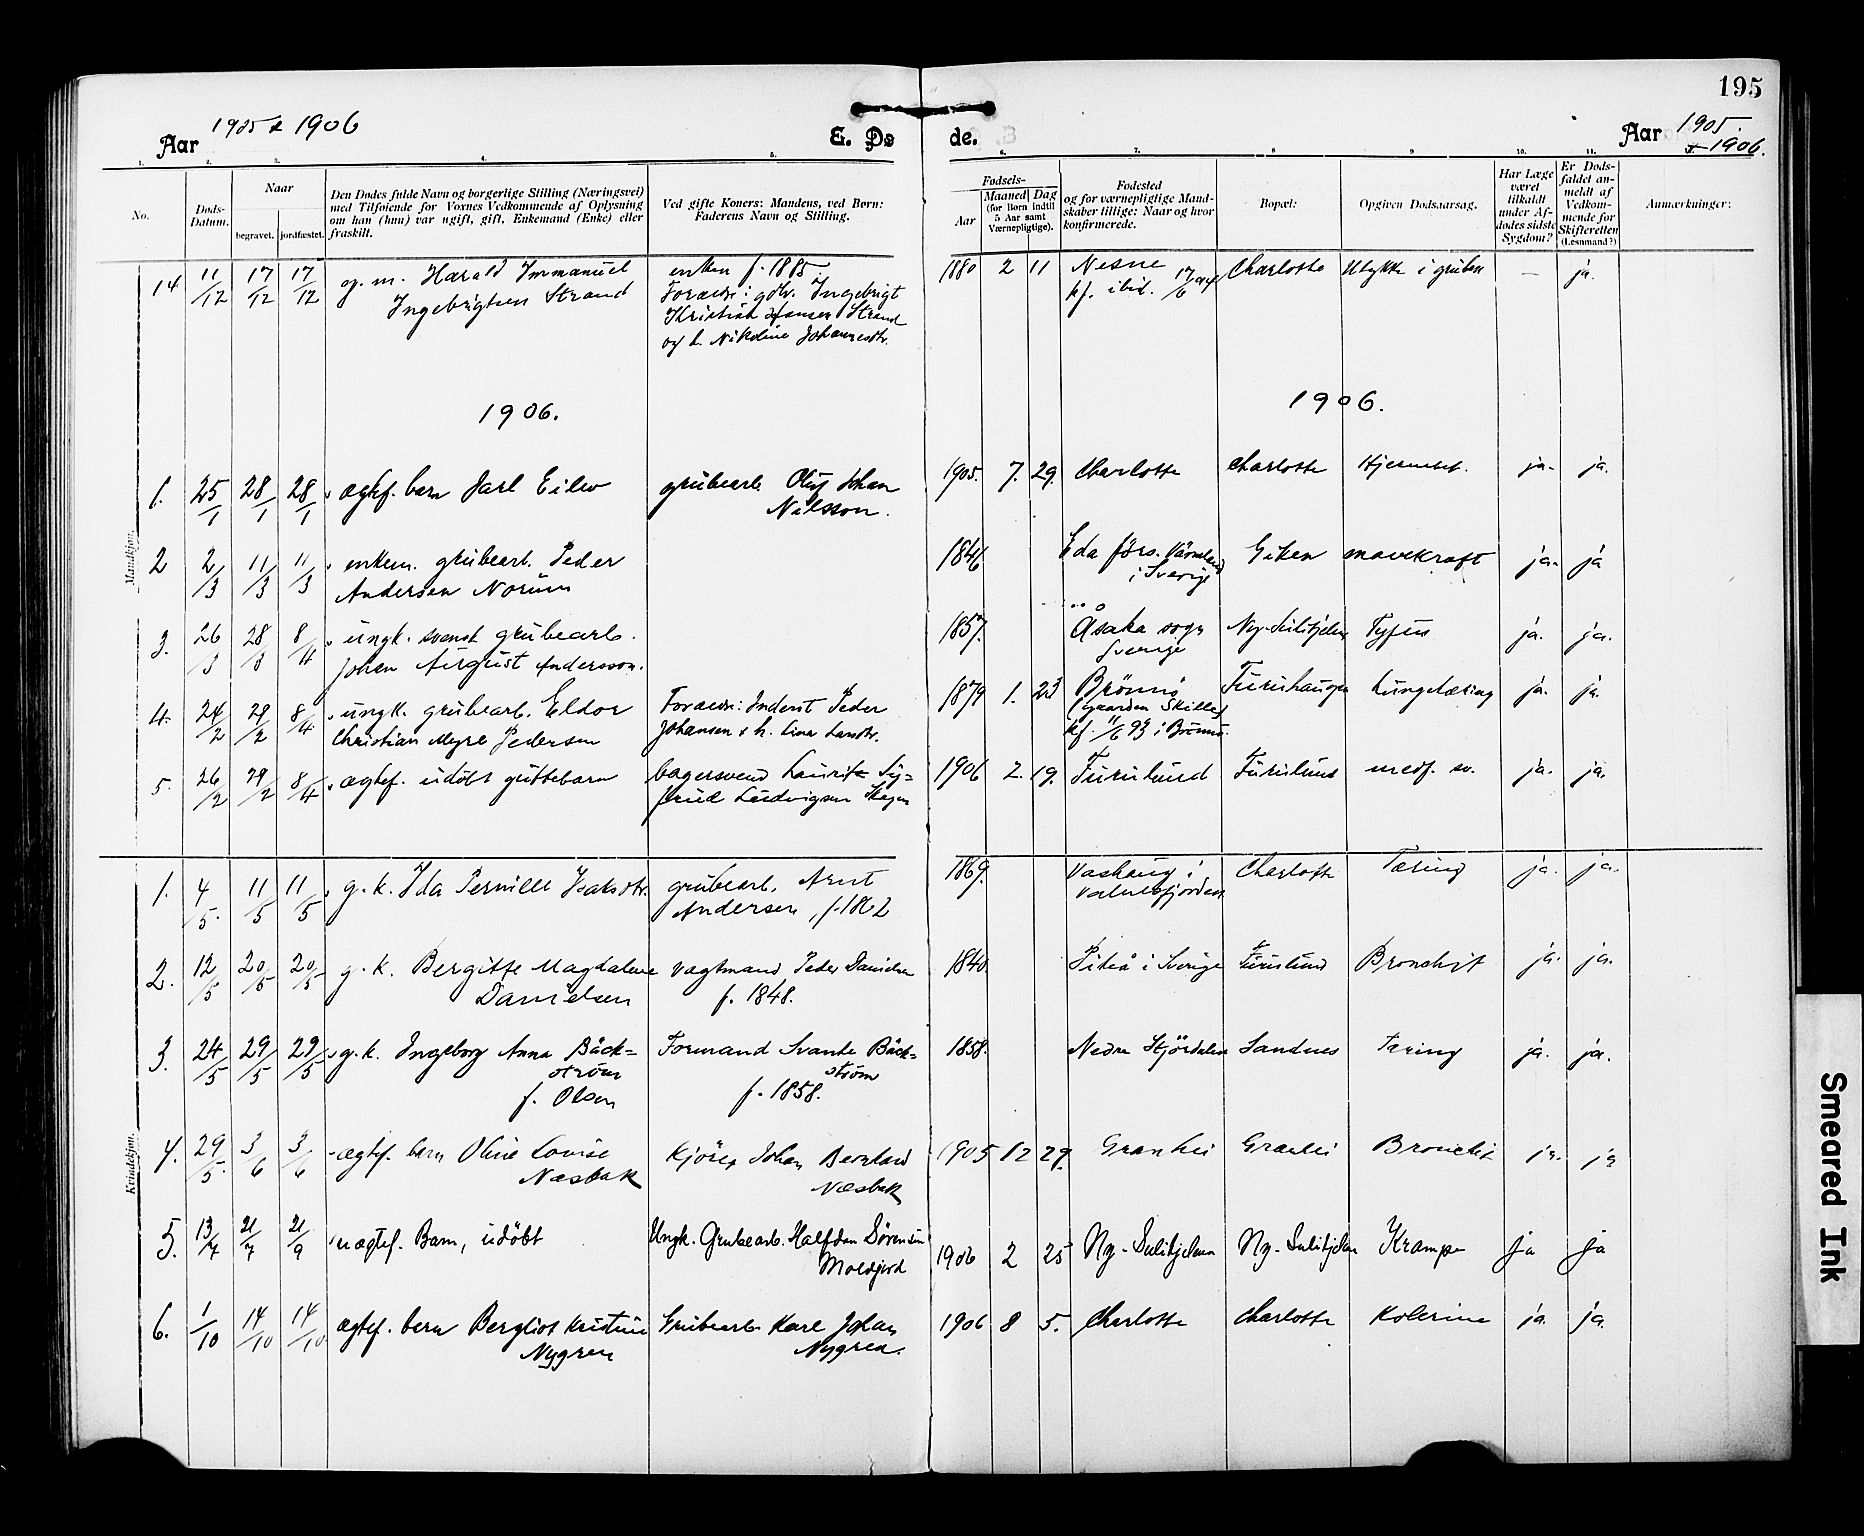 195
Aar 1905 & 1906
E. Dø
de.
Aar 1905.
& 1906.
1. 2. 3. 4. 5. 6. 7. 8 9 10. 11.
No.
Døds-
Datum.
Naar
begravet. jordfæstet.
Den Dødes fulde Navn og borgerlige Stilling (Næringsvei)
med Tilføiende for Voxnes Vedkommende af Oplysning
om han (hun) var ugift, gift, Enkemand (Enke) eller
fraskilt.
Ved gifte Koners: Mandens, ved Børn:
Faderens Navn og Stilling.
Fødsels-
Aar
Maaned Dag
(for Børn indtil
5 Aar samt
Værnepligtige).
Fødested
og for værnepligtige Mand-
skaber tillige: Naar og hvor
konfirmerede.
Bopæl:
Opgiven Dødsaarsag.
Har Læge
været
tilkaldt
under Af-
dødes sidste
Sygdom?
Er Døds-
faldet an-
meldt af
Vedkom-
mende for
Skifteretten
(Lensmand?)
Anmærkninger:
Mandkjøn.
14 11/12 17/12 17/12 g. m. Harald Immanuel
Ingebrigtsen Strand
enken f. 1885.
Forældr: gdbr. Ingebrigt
Kristian Hansen Strand
og h. Nikoline Johannesdtr.
1880 2 11 Nesne
kf. ibid. 17/6
Charlotte Ulykke i gruben — ja.
1906.
1906.
1. 25/1 28/1 28/1 ægtef. barn Jarl Eilev
grubearb. Oluf Johan
Nilsson.
1905. 7. 29. Charlotte Charlotte Hjernebet. ja. ja.
2 2/3 11/3 11/3 enkem. grubearb. Peder
Andersen Norum
1846 Eda förs. Värmland
i Sverige
Giken mavekræft ja. ja
3. 26/3 28/3 8/4 ungk. svensk grubearb.
Johan August Andersson.
1857. Åsaka sogn
Sverige
Ny-Sulitjelma Tyfus ja. ja.
4. 24/2 29/2 8/4 ungk. grubearb. Eldor
Christian Meyre Pedersen
Forældr: Inderst Peder
Johansen & h. Lina Larsdtr.
1879 1. 23 Brønnø
(gaarden Skilles
kf. 11/6 93 i Brønnø.
Furuhaugen Lungetæring ja. ja
5. 26/2 29/2 8/4 ægtef. udøbt guttebarn
bagersvend Lauritz Si-
gfrid Ludvigsen
1906 2. 19. Furulund Furulund medf. sv. ja. ja.
Kvindekjøn.
1. 4/5. 11/5 11/5 g. k. Ida Pernille Isaksdtr.
grubearb. Arnt
Andersen, f. 1862
1869. Vashaug i
Charlotte Tæring ja. ja.
2. 12/5 20/5 20/5 g. k. Bergitte Magdalene
Danielsen
vagtmand Peder Danielsen
f. 1848.
1840. Piteå i Sverige Furulund Bronchit ja. ja.
3. 24/5 29/5 29/5 g. k. Ingeborg Anna Bäck-
ström
f. Olsen
Formand Svante Bäck-
ström
f. 1858.
1858. Nedre Stjördalen Sandnes Tæring ja. ja.
4. 29/5. 3/6 3/6 ægtef. barn Oline Lovise
Næsbak
Kjører Johan Bernhard
Næsbak
1905 12 29. Granhei Granhei Bronchit ja. ja
5. 13/7 21/7 21/9 uægtef. Barn, udøbt
Ungk. Grubearb. Halfdan Sörensen
Moldjord
1906 2 25 Ny-Sulitjelma Ny-Sulitjelma Krampe ja ja
6. 1/10 14/10 14/10 ægtef. barn Bergliot Kristine
Nygren
Grubearb. Karl Johan
Nygren.
1906 8 5. Charlotte Charlotte Kolerine ja. ja.
Smeared Ink